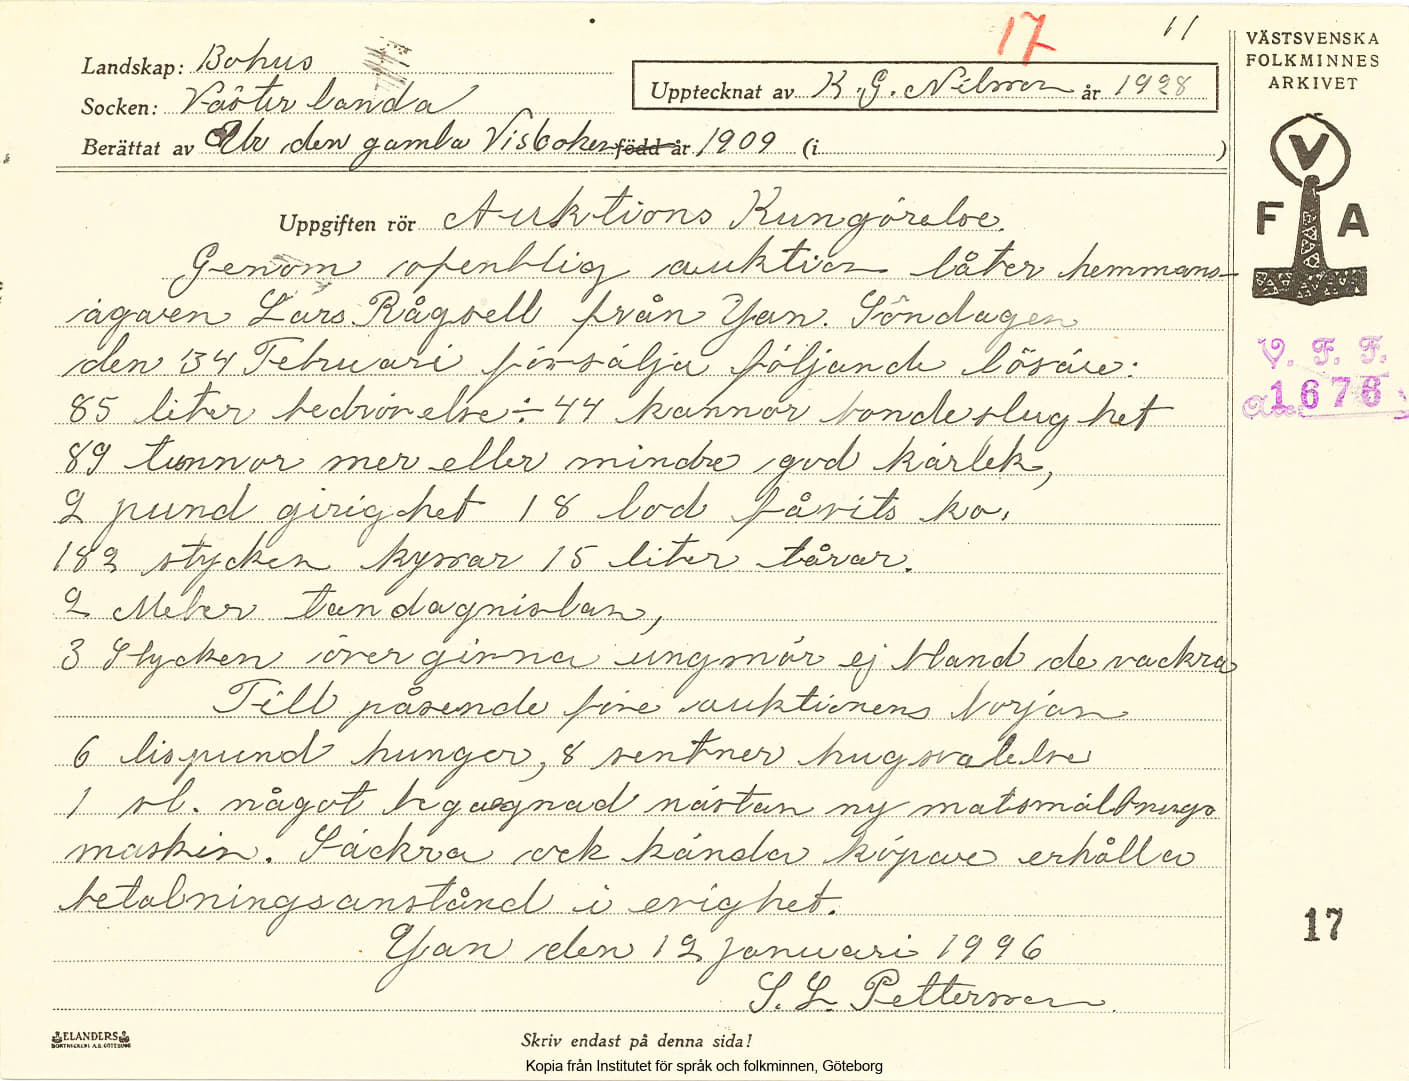 17
11
Landskap: Bohus
Socken: Väster landa
Upptecknat av K. G. Nilsson år 1928
Berättat av Ur den gamla Visboken född år 1909 (i )
VÄSTSVENSKA
FOLKMINNES
ARKIVET
V
F A
Uppgiften rör Auktions Kungörelse.
Genom openblig auktion låter hemmans-
ägaren Lars Rågsell från Yan. Söndagen
den 34 Februari försälja följande lösöre:
85 liter bedrövelse ÷ 44 kannor bondeslughet
89 tunnor mer eller mindre god kärlek,
2 pund girighet 18 lod fåvits ko,
182 stycken kyssar 15 liter tårar.
2 Meter tandagnislan,
3 Stycken övergivna ungmör ej bland de vackra
Till påseende före auktionens början
6 lispund hunger, 8 sentner hugsvalelse
1 st. något begagnad nästan ny matsmältnings
maskin. Säckra ock kända köpare erhålla
betalningsanstånd i evighet.
Yan den 12 januari 1996
S. L. Petterson
V. F. F.
1676
17
ELANDERS
BOKTRYCKERI A.B. GÖTEBORG
Skriv endast på denna sida!
Kopia från Institutet för språk och folkminnen, Göteborg